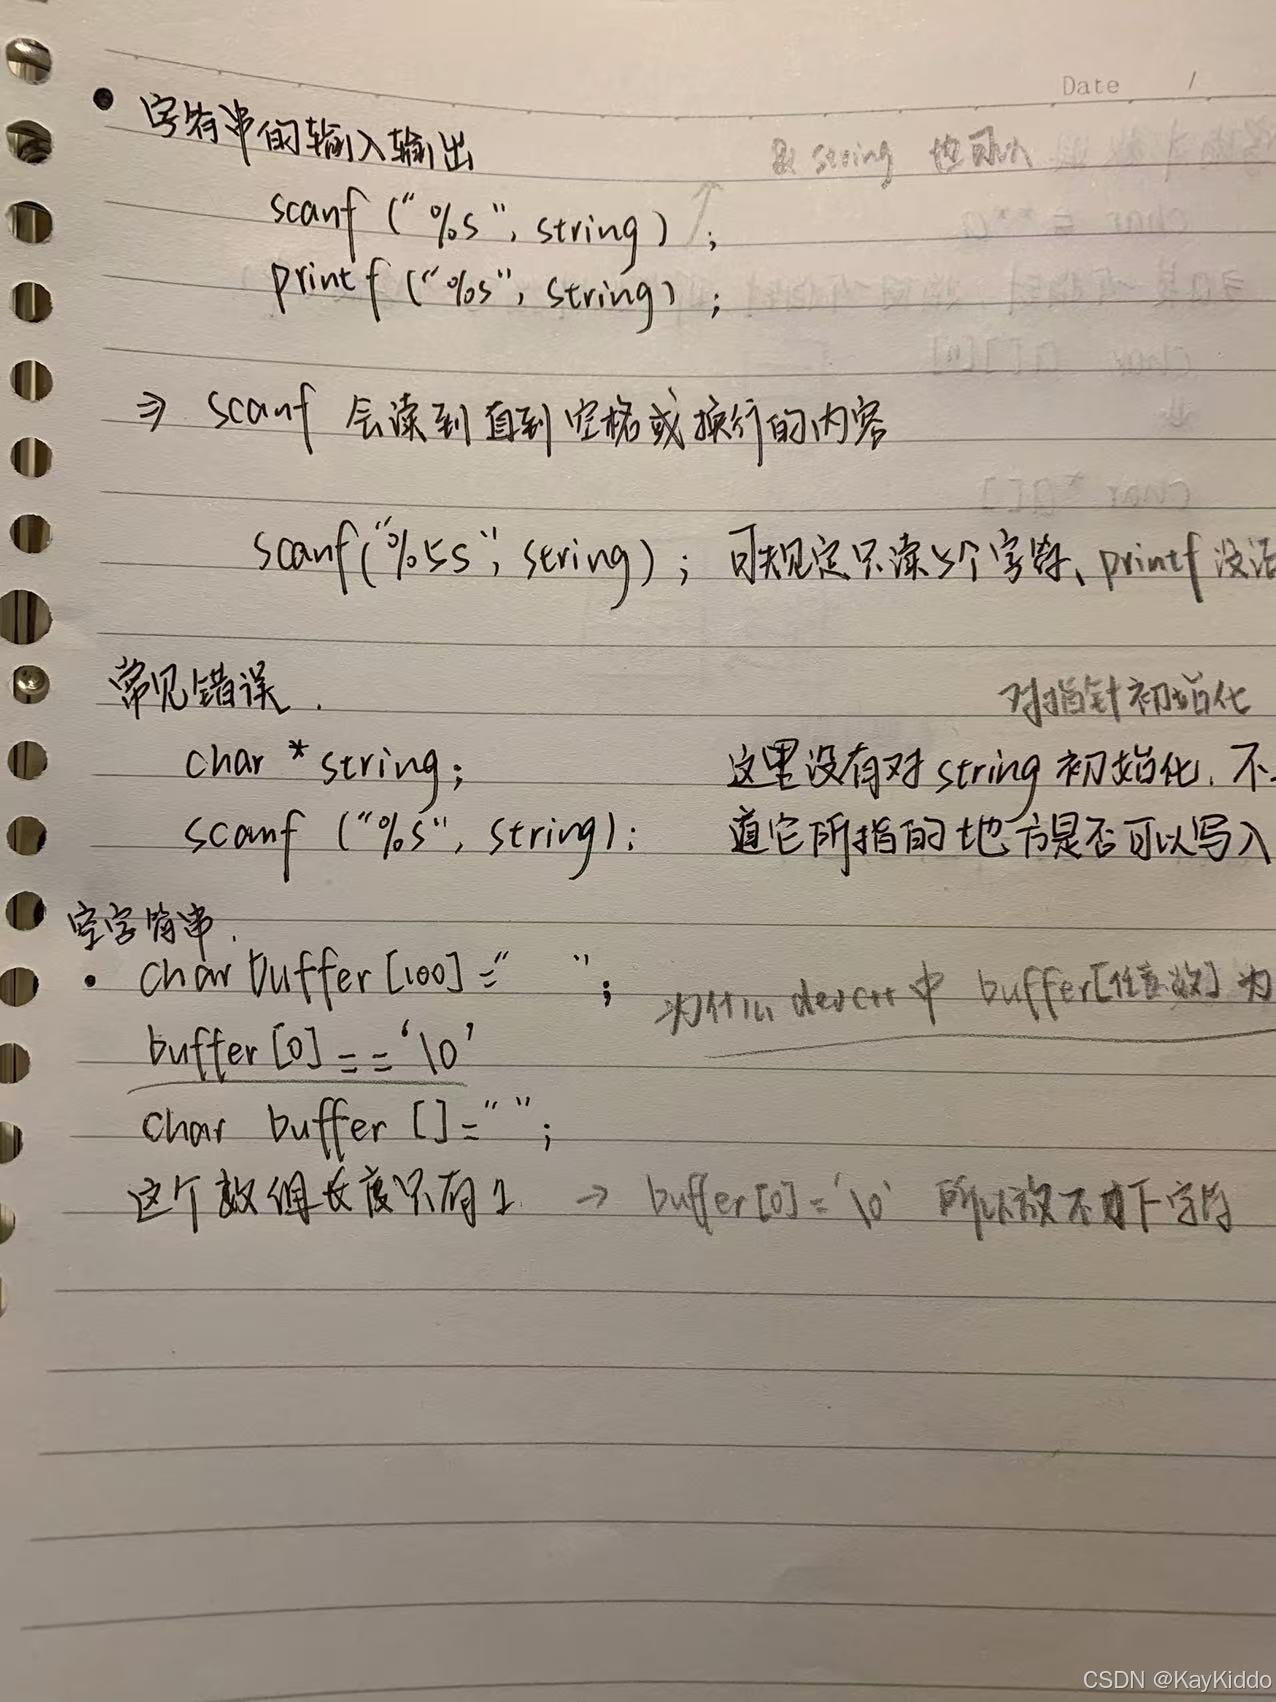 Date /
• 字符串的输入输出
& string 也可以
scanf ("%s", string) ;
printf ("%s", string) ;
⇒ scanf 会读到直到空格或换行的内容
scanf("%5s", string) ; 可规定只读5个字符、printf 没
常见错误.
对指针初始化
char * string; 这里没有对 string 初始化. 不
scanf ("%s", string); 道它所指的地方是否可以写入
空字符串.
• char buffer [100] =" "; 为什么 devc++ 中 buffer[任意数] 为
buffer [0] == '\0'
char buffer [] = " ";
这个数组长度只有1. → buffer[0] = '\0' 所以放不下字符
CSDN @KayKiddo